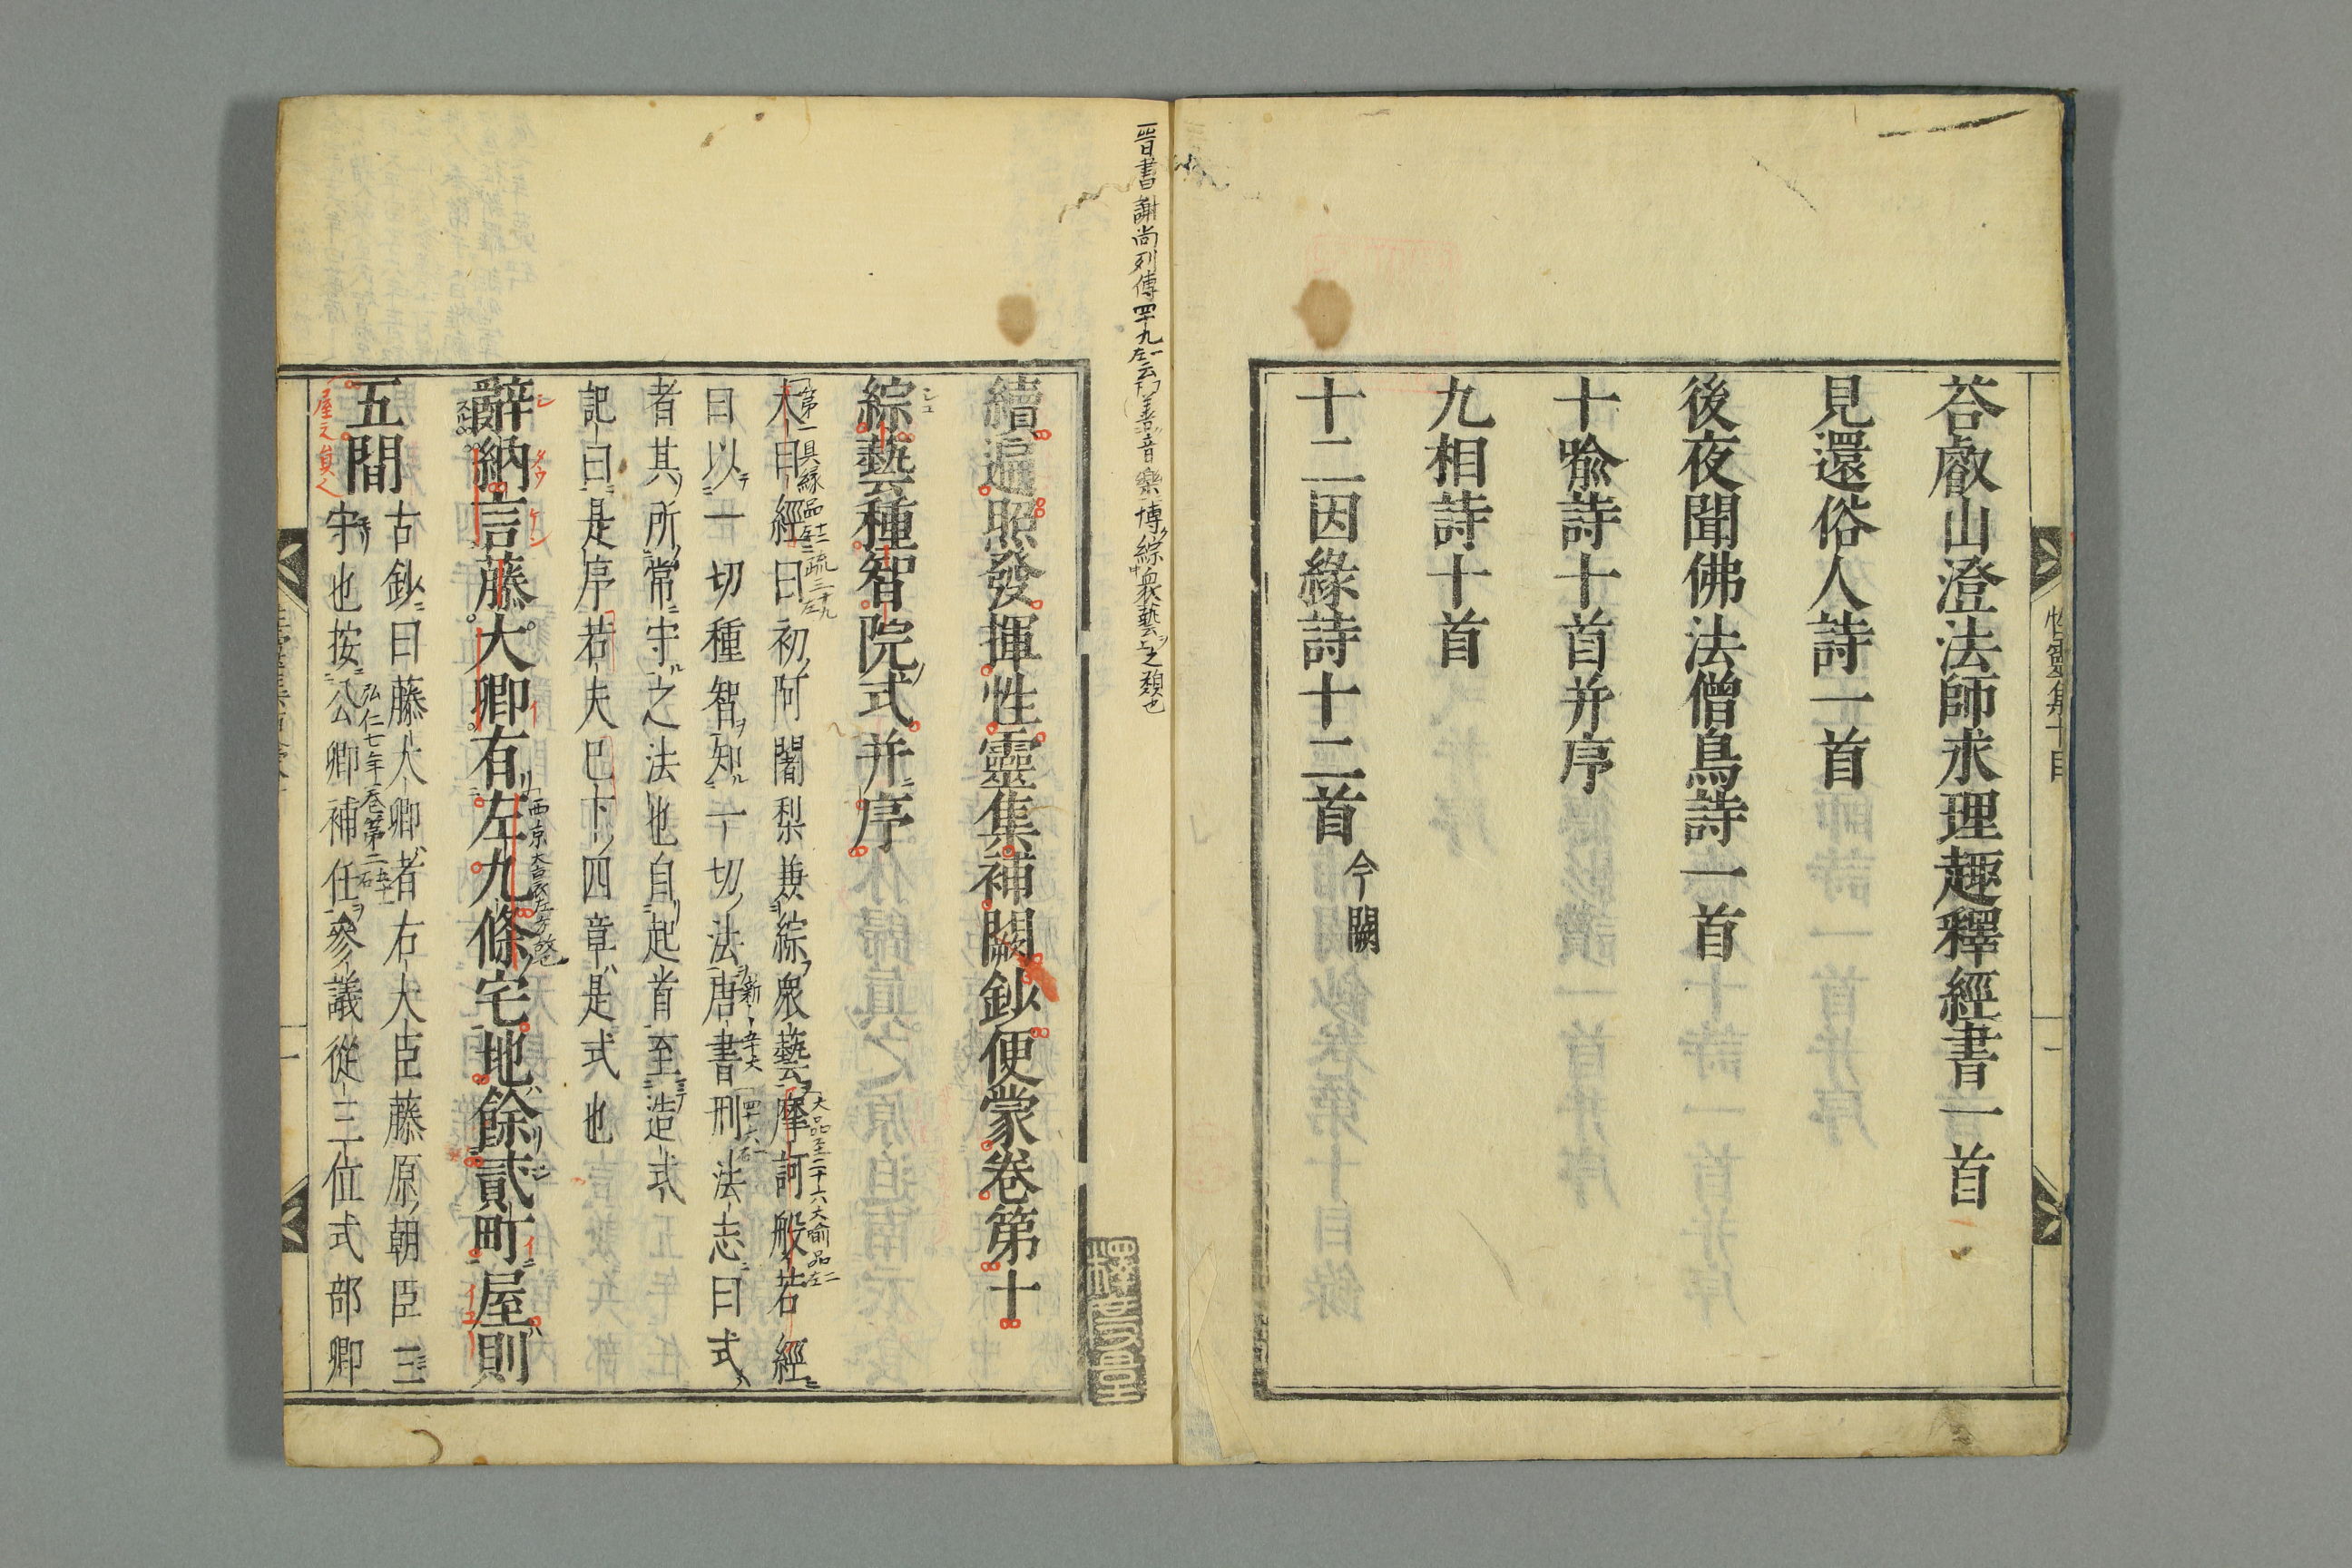 荅叡山澄法師求理趣釋經書一首
見還俗人詩一首
後夜聞佛法僧鳥詩一首
十喩詩十首并序
九相詩十首
十二因緣詩十二首今闕
性靈集十目
晉書謝尚列傳四十九左一云善音樂博綜衆藝
續遍照發揮性靈集補闕鈔便蒙卷第十
綜藝種智院式并序
大日經曰初阿闍梨兼綜衆藝摩訶般若經
第一具縁品
曰以一切種智知一切法唐書刑法志曰式
者其所常守之法也自起首至造式
記曰是序若夫已下四章是式也
辭納言藤大卿有左九條宅地餘貳町屋則
五間
古鈔曰藤大卿者右大臣藤原朝臣三
守也按公卿補任參議從三位式部卿
弘仁七年